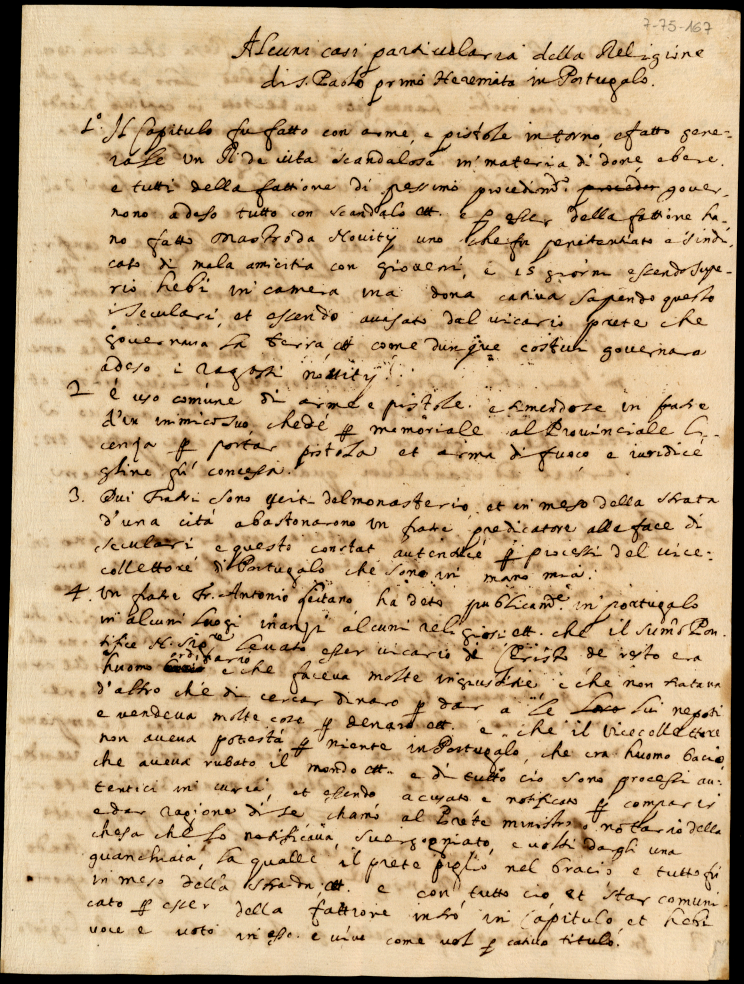 7-75-167
Alcuni casi particulari della Religione
di S. Paolo primo Heremita in Portugalo.
1.º Il Capitulo fu fatto con arme, e pistole intorno, e fatto gene-
rale un di vita scandalosa in materia di done, e bere.
e tutti della fattione di pessimo procedim.to proceder gover-
nono adeso tutto con scandalo ett. e p eser della fattione ha-
no fatto Mastro da Novitij uno che fu penitentiato e sindi-
cato di mala amicitia con gioveni, e 15 giorni esendo supe-
rio hebi in camera una dona cativa sapendo questo
i seculari, et esendo avisato dal vicario prete che
governava la terra ett come dunque costui governara
adeso i ragosi novitij!
2 é uso comune di arme e pistole. e temendose un frate
d'un inimico suo, chedé p memoriale al Provinciale li-
cenza p portar pistola et arma di fuoco e iuridice
gliene fú concessa.
3. Dui Frati sono del monasterio, et in meso della strata
d'una citá abastonarono un frate predicatore alla face di
seculari e questo constat autentice p processi del vice-
collettore di Portugalo che sono in mano mia.
4. Un frate Fr. Antonio ha deto publicam.te in portugalo
in alcuni luogi inanzi alcuni religiosi ett. che il sumo Pon-
tifice N. Sig.re levato eser vicario di Christo de resto era
huomo ordinario e che faceva molte ingiustitie e che non tratava
d'altro che di cercar dinaro p dar a le lui nepoti
e vendeva molte cose p denaro ett. e che il vicecollettore
non aveva potestá p niente in Portugalo, che era huomo
che aveva rubato il mondo ett. e di tutto ció sono processi au-
tentici in curia, et esendo acusato e notificato p comparir
e dar ragione di se chamó al Prete ministro o notario della
chesa che lo notificava, svergogniato, e volsi dargli una
guanchiata, la qualle il prete piglió nel bracio e tutto fú
in meso della strada ett. e con tutto ció et star comuni-
cato p eser della fattione intró in Capitulo et hebi
voce e voto in esso e vive come vol p cativo titulo.